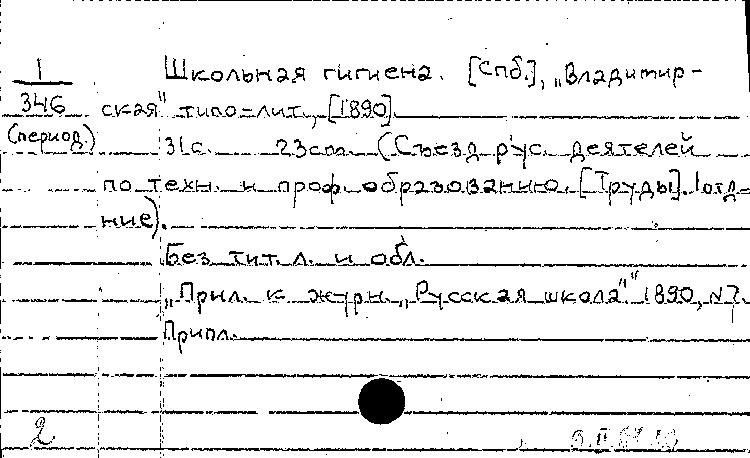 1
346
(период.)
Школьная гигиена. [Спб.], „Владимир-
ская" типо-лит., [1890].
31с. 23см. (Съезд рус. деятелей
по техн. и проф. образованию. [Труды]. 1 отд-
ние).
Без тит. л. и обл.
„Прил. к журн. „Русская школа"." 1890, №7.
Припл.
2